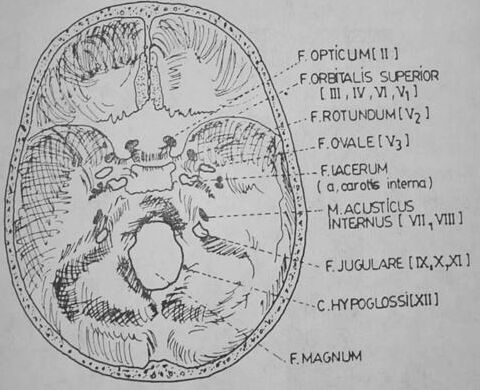 F. OPTICUM [II]
F. ORBITALIS SUPERIOR
[III, IV, VI, V₁]
F. ROTUNDUM [V₂]
F. OVALE [V₃]
F. LACERUM
(a, carotis interna)
M. ACUSTICUS
INTERNUS [VII, VIII]
F. JUGULARE [IX, X, XI]
C. HYPOGLOSSI [XII]
F. MAGNUM